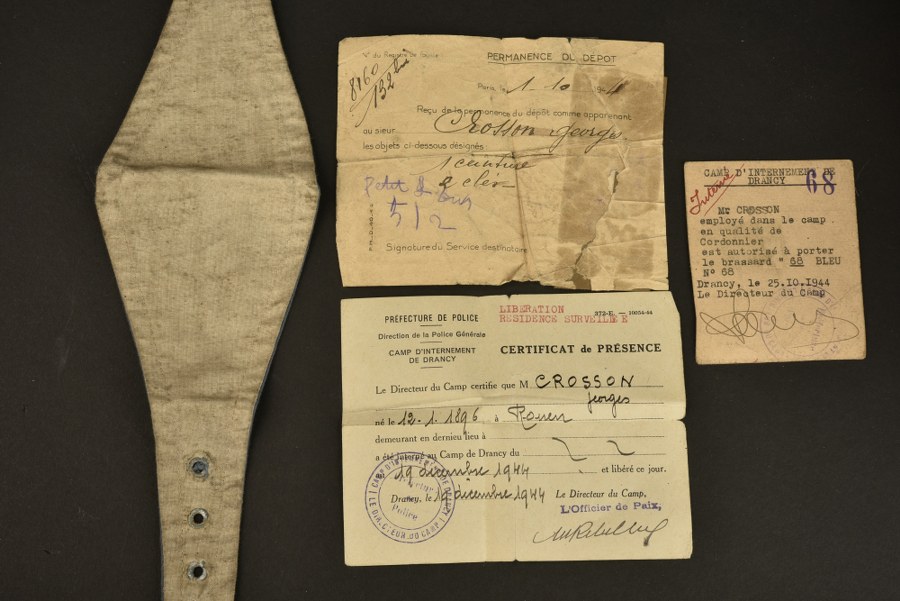 N° du Registre de fouille
8160
132 bis
PERMANENCE DU DÉPOT
Paris, le 1-10
Reçu de la permanence du dépôt comme appartenant
au sieur Crosson georges
les objets ci-dessous désignés
1 ceinture
2 clés
5/2
Signature du Service destinataire
CAMP D'INTERNEMENT DE
DRANCY
68
Interné
Mr CROSSON
employé dans le camp
en qualité de
Cordonnier
est autorisé à porter
le brassard " 68 BLEU
N° 68
Drancy, le 25.10.1944
Le Directeur du Camp
PRÉFECTURE DE POLICE
Direction de la Police Générale
CAMP D'INTERNEMENT
DE DRANCY
LIBERATION
RESIDENCE SURVEILLEE
972-E. — 10654-44
CERTIFICAT de PRÉSENCE
Le Directeur du Camp certifie que M CROSSON
georges
né le 12-1-1896 à Rouen
demeurant en dernier lieu à
a été interné au Camp de Drancy du
19 décembre 1944 et libéré ce jour.
Drancy, le 19 décembre 1944
Le Directeur du Camp,
L'Officier de Paix,
CAMP D'INTERNEMENT DE DRANCY
LE DIRECTEUR DU CAMP
Police